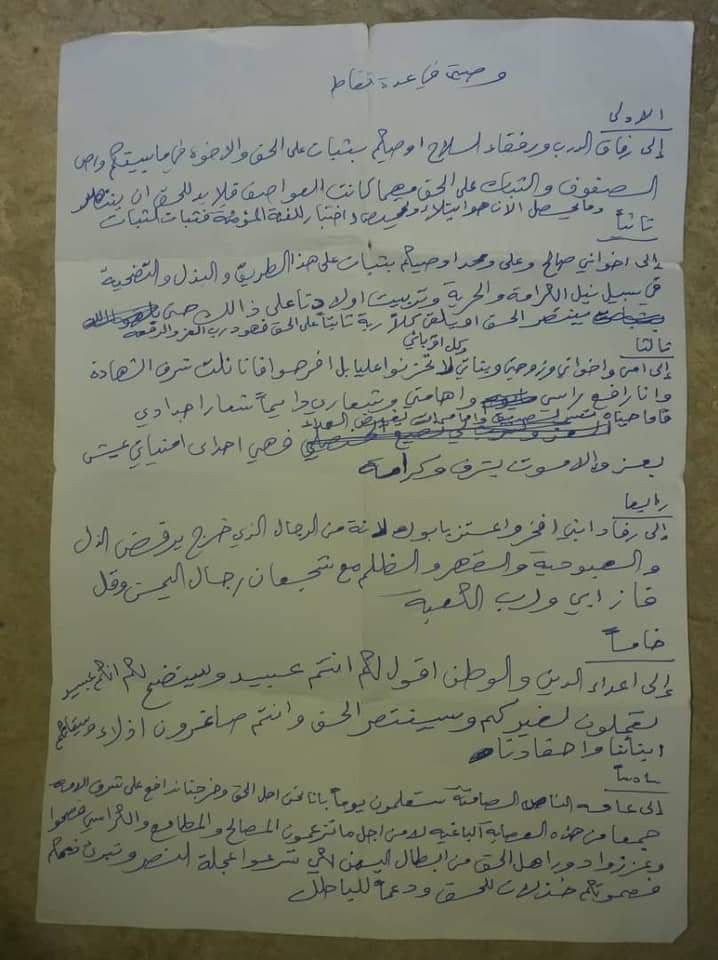 وصيتي في عدة نقاط
الاولى
إلى رفاق الدرب ورفقاء السلاح اوصيكم بثبات على الحق والاخوة في مابينكم واص
الصفوف والثبات على الحق مهما كانت العواصف فلابد للحق ان ينتصر
وما يحصل الآن هوا ابتلاء واختبار للفئة المؤمنة فثبات الثبات
ثانياً
إلى اخواني صالح وعلى ومحمد اوصيكم بثبات على هذا الطريق والبذل والتضحية
في سبيل نيل الكرامة والحرية وتربيت اولادنا على ذالك حتى
ينتصر الحق او يلقى كلاً ربه ثابتاً على الحق فهو درب العز والرفعة
ثالثا
وكل اقربائي
إلى امي واخواتي وزوجتي وبناتي لا تحزنوا عليا بل افرحوا فانا نلت شرف الشهادة
وانا رافع راسي وهامتي وشعاري دايماً شعار اجدادي
فاما حياة تسر الصديق واما ممات يغيض العداء
فهي احدى امنياتي عيش
بعز والا موت بشرف وكرامه
رابعا
إلى رفاد ابني افخر واعتز بابوك لانة من الرجال الذي خرج يرفض الذل
والعبودية والقهر والظلم مع شجعان رجال اليمن وقل
فاز ابي ورب الكعبة
خامساً
إلى اعداء الدين والوطن اقول لكم انتم عبيد وسيتضح لكم انكم عبيد
تعملون لغيركم وسينتصر الحق وانتم صاغرون اذلاء وسيقاتلكم
ابنائنا واحفادنا
سادساً
إلى عامه الناس الصامتة ستعلمون يوماً باننا نحن اهل الحق وخرجنا ندافع على شرف الامه
جمعا من هذه العصابة الباغيه لا من اجل ما تزعمون المصالح والمطامع والكراسي فصحوا
وعززوا دور اهل الحق من ابطال اليمن لاجل تسرعوا عجلة النصر وتبرئ ذممكم
فصموتكم خذلان للحق ودعماً للباطل